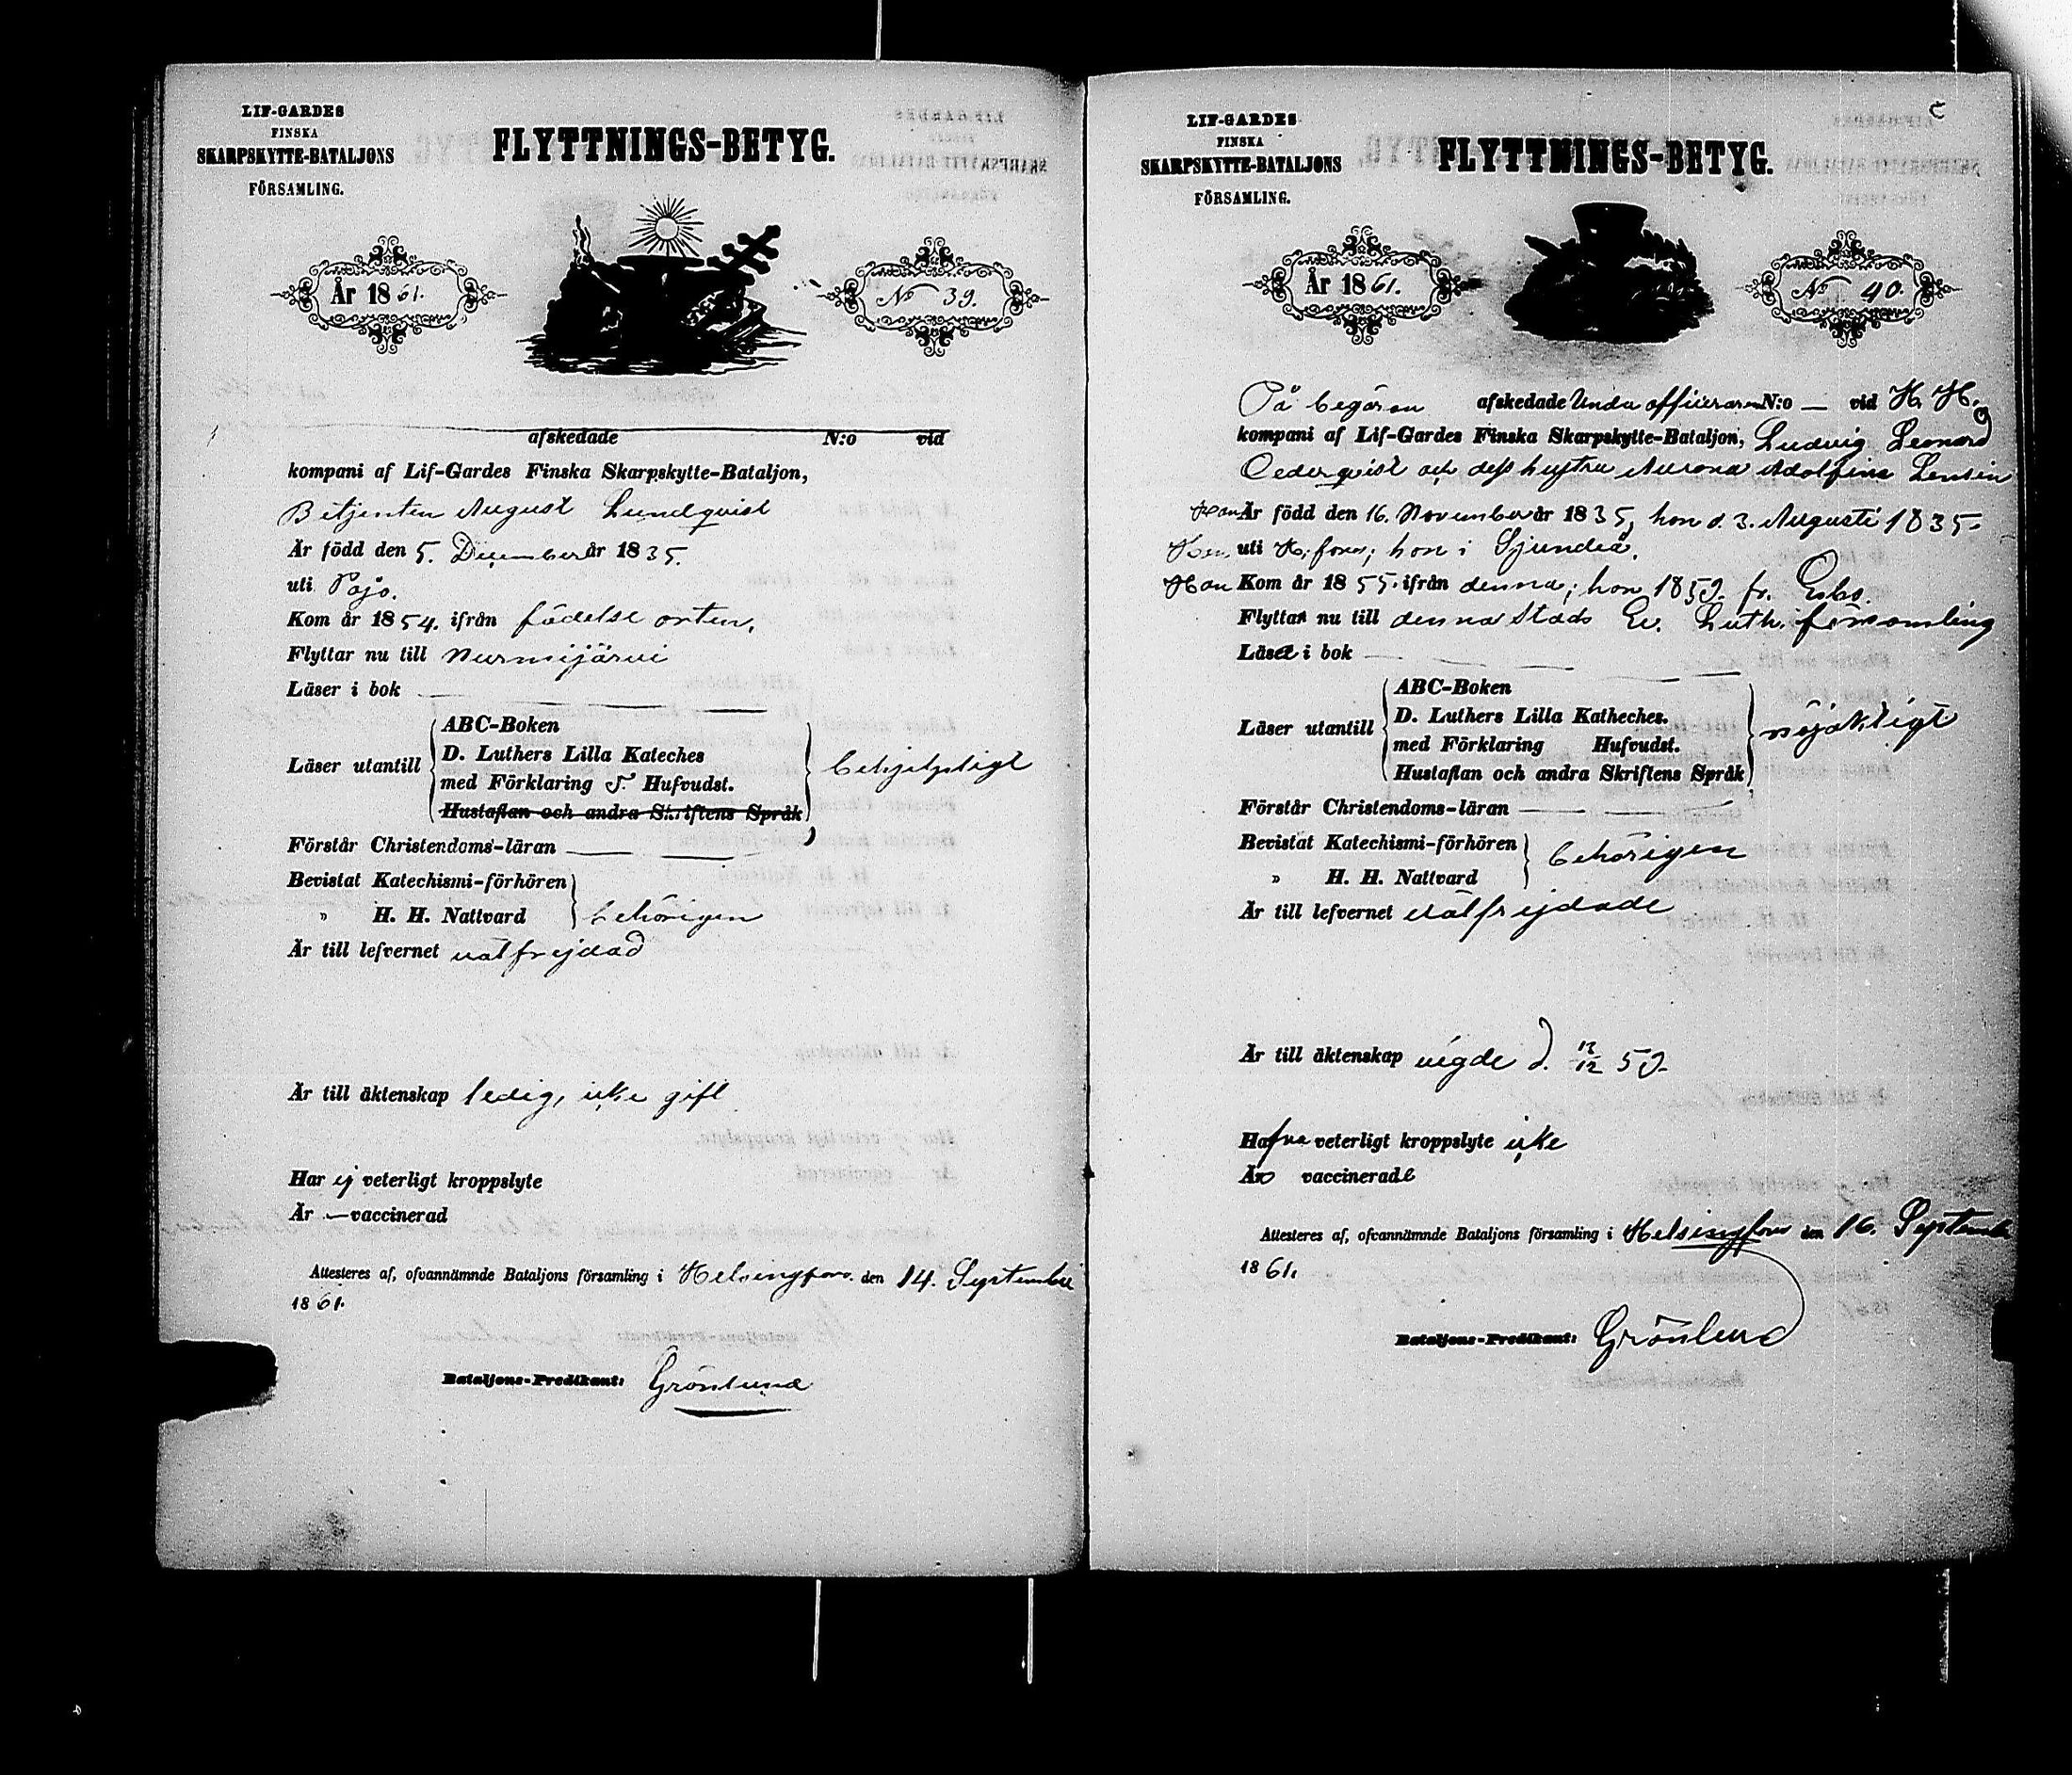 LIF-GARDES
FINSKA
SKARPSKYTTE-BATALJONS
FÖRSAMLING.
FLYTTNINGS-BETYG.
År 1861.
No 39.
afskedade N:o vid
kompani af Lif-Gardes Finska Skarpskytte-Bataljon,
Betjenten August Lundqvist
Är född den 5. December år 1835.
uti Pojo.
Kom år 1854. ifrån födelse orten.
Flyttar nu till Nurmijärvi
Läser i bok
Läser utantill
ABC-Boken
D. Luthers Lilla Kateches
med Förklaring 5. Hufvudst.
Hustaflan och andra Skriftens Språk
behjelpligt
Förstår Christendoms-läran
Bevistat Katechismi-förhören
» H. H. Nattvard
behörigen
Är till lefvernet välfrejdad
Är till äktenskap ledig, icke gift
Har ej veterligt kroppslyte
Är — vaccinerad
Attesteres af, ofvannämnde Bataljons församling i Helsingfors. den 14. September
1861.
Bataljons-Predikant: Grönlund
LIF-GARDES
FINSKA
SKARPSKYTTE-BATALJONS
FÖRSAMLING.
FLYTTNINGS-BETYG.
År 1861.
No 40.
På begäran afskedade Underofficeraren N:o — vid H. H.
kompani af Lif-Gardes Finska Skarpskytte-Bataljon, Ludvig Leonard
Cederqvist och dess hustru Aurora Adolfina Lenin
Han Är född den 16. November år 1835, hon d. 3. Augusti 1835.
Han uti H:fors; hon i Sjundeå.
Han Kom år 1855. ifrån denna; hon 1859. fr. Esbo.
Flytta nu till denna Stads Ev. Luth. församling
Läser i bok
Läser utantill
ABC-Boken
D. Luthers Lilla Katheches.
med Förklaring Hufvudst.
Hustaflan och andra Skriftens Språk
nöjaktigt
Förstår Christendoms-läran
Bevistat Katechismi-förhören
» H. H. Nattvard
behörigen
Är till lefvernet välfrejdade
Är till äktenskap vigde d. 59.
Hafva veterligt kroppslyte icke
Äro vaccinerade
Attesteres af, ofvannämnde Bataljons församling i Helsingfors den 16. September
1861.
Bataljons-Predikant: Grönlund